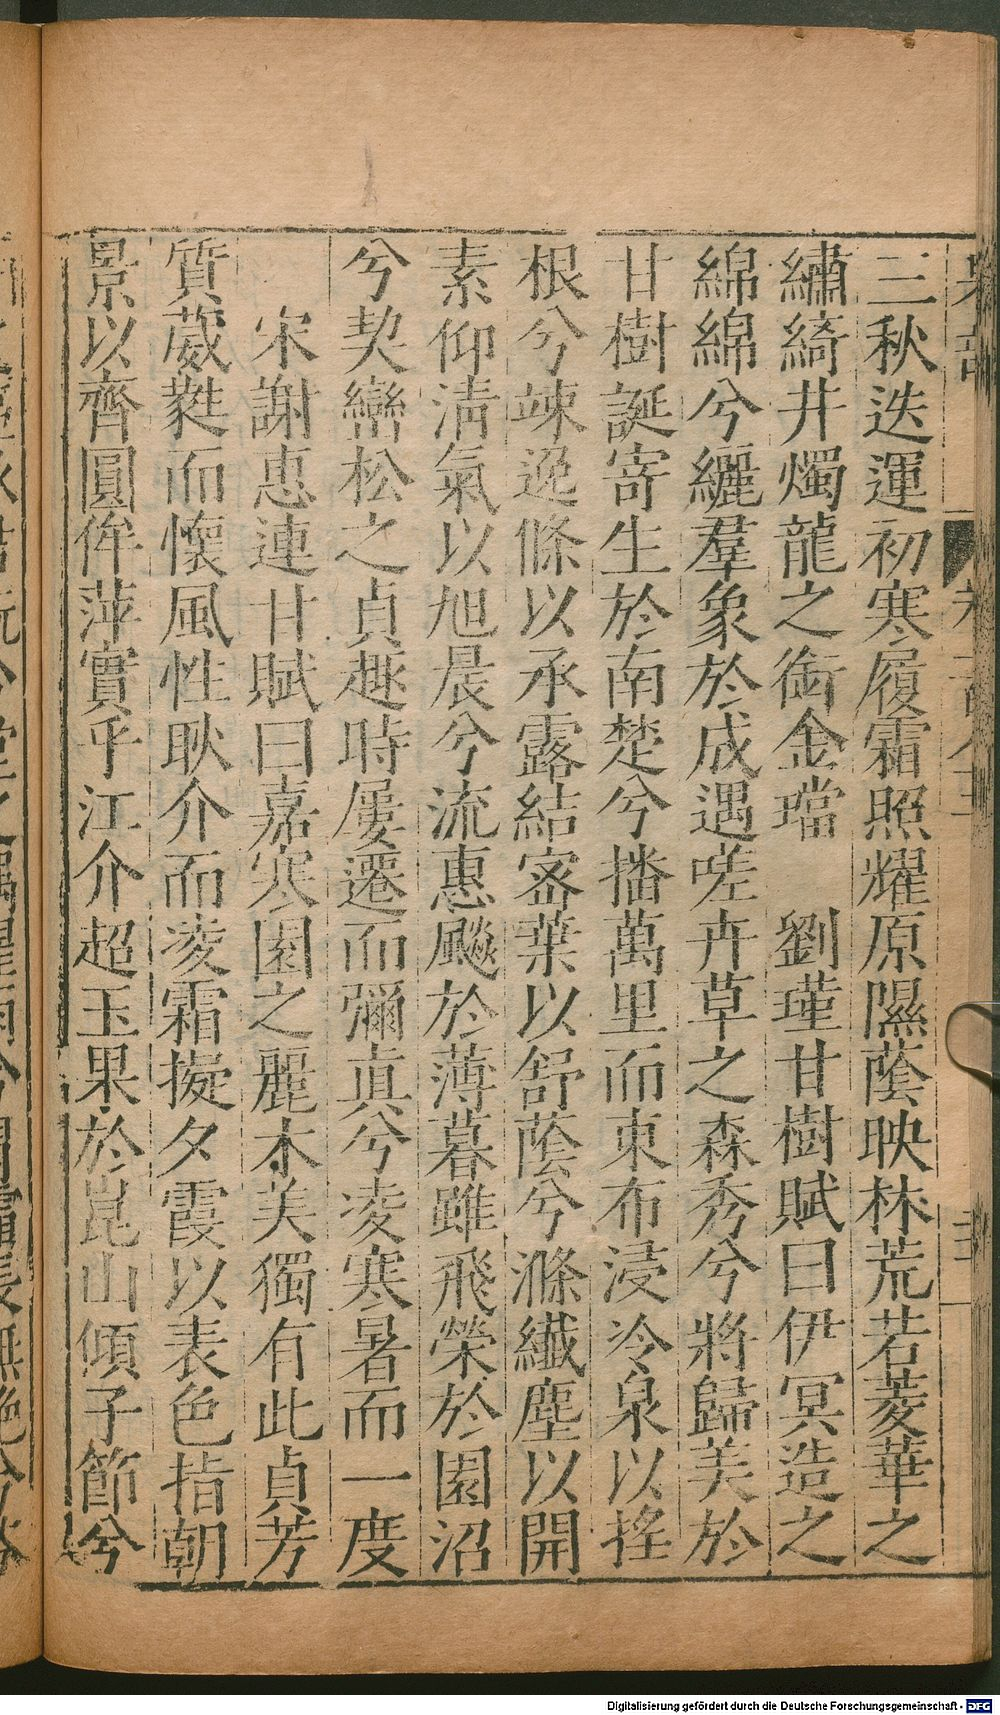 三秋迭運初寒履霜照耀原隰蔭映林荒若菱華之
繡綺井燭龍之銜金璫　劉瑾甘樹賦曰伊冥造之
綿綿兮纚羣象於成遇嗟卉草之森秀兮將歸美於
甘樹誕寄生於南楚兮播萬里而東布浸冷泉以搖
根兮竦逸條以承露結密葉以舒蔭兮滌纎塵以開
素仰清氣以旭晨兮流惠飈於薄暮雖飛榮於園沼
兮契巒松之貞趣時屢遷而彌真兮凌寒暑而一度
宋謝惠連甘賦曰嘉寒園之麗木美獨有此貞芳
質葳蕤而懷風性耿介而凌霜擬夕霞以表色指朝
景以齊圓侔萍實乎江介超玉果於崑山傾子節兮
Digitalisierung gefördert durch die Deutsche Forschungsgemeinschaft - DFG